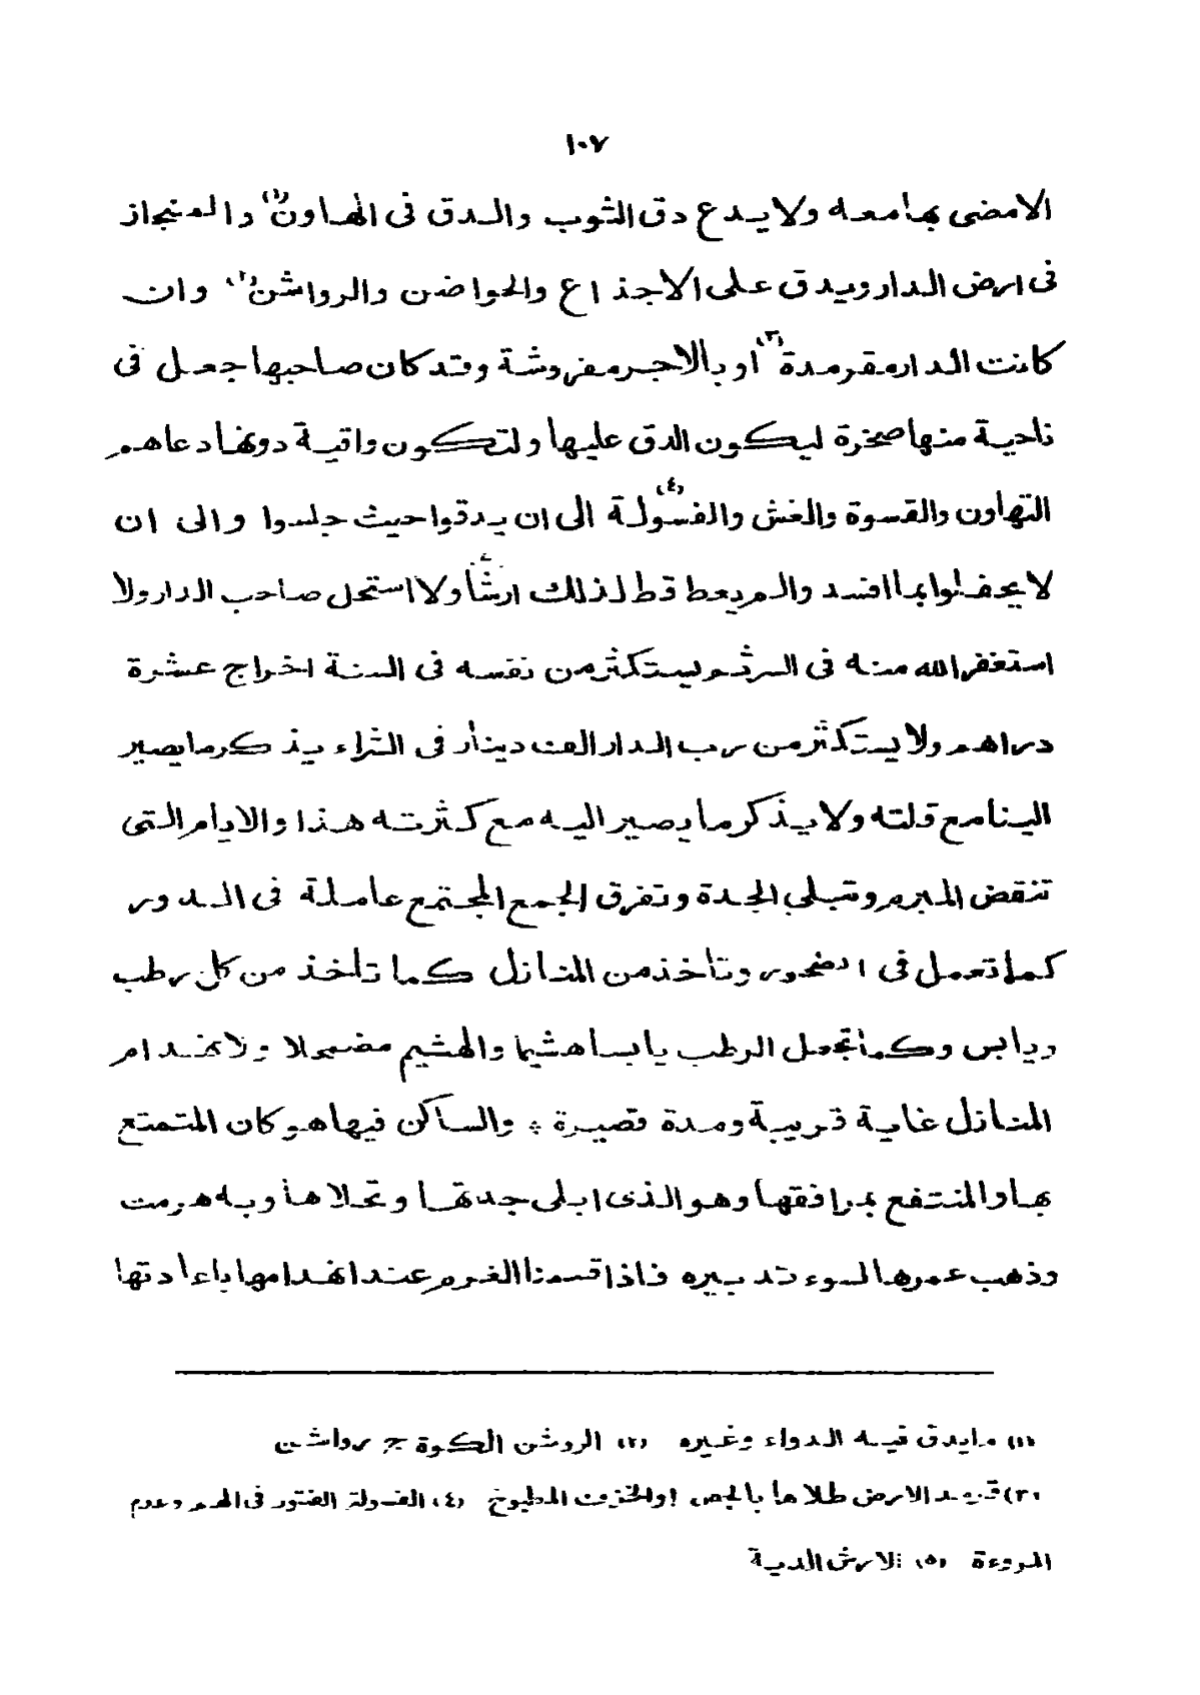 ١٠٧
الامضى بهامعه ولا يدع دق الثوب والدق فى الهاون(١) والمنجاز
فى ارض الدار ويدق على الاجذاع والحواضن والرواشن(٢) وان
كانت الدار مقرمدة(٣) او بالاجر مفروشة وقد كان صاحبها جعل فى
ناحية منها صخرة ليكون الدق عليها ولتكون واقية دونها دعاهم
التهاون والقسوة والغش والفسولة(٤) الى ان يدقوا حيث جلسوا والى ان
لا يحفلوا بما افسد والم يعط قط لذلك ارشأ ولا استحل صاحب الدار ولا
استغفر الله منه فى السر ثم يستكثر من نفسه فى السنة اخراج عشرة
دراهم ولا يستكثر من رب الدار الف دينار فى الشراء يذكر ما يصير
الينا مع قلته ولا يذكر ما يصير اليه مع كثرته هذا والايام التى
تنقض المبرم وتبلي الجدة وتفرق الجمع المجتمع عاملة فى الدور
كما تعمل فى الصخور وتأخذ من المنازل كما تأخذ من كل رطب
ويابس وكما تجعل الرطب يابسا هشيما والهشيم مضمحلا ولانهدام
المنازل غاية قريبة ومدة قصيرة * والساكن فيها هو كان المتمتع
بها والمنتفع بمرافقها وهو الذى ابلى جدتها وتحلاها وبه هرمت
وذهب عمرها لسوء تدبيره فاذا قسمنا الغرم عند انهدامها باعادتها
(١) ما يدق فيه الدواء وغيره (٢) الروشن الكوة ج رواشن
(٣) قرمد الارض طلاها بالجص او الخزف المطبوخ (٤) الفسولة الفتور فى الهم وعدم
المروءة (٥) الارش الدية